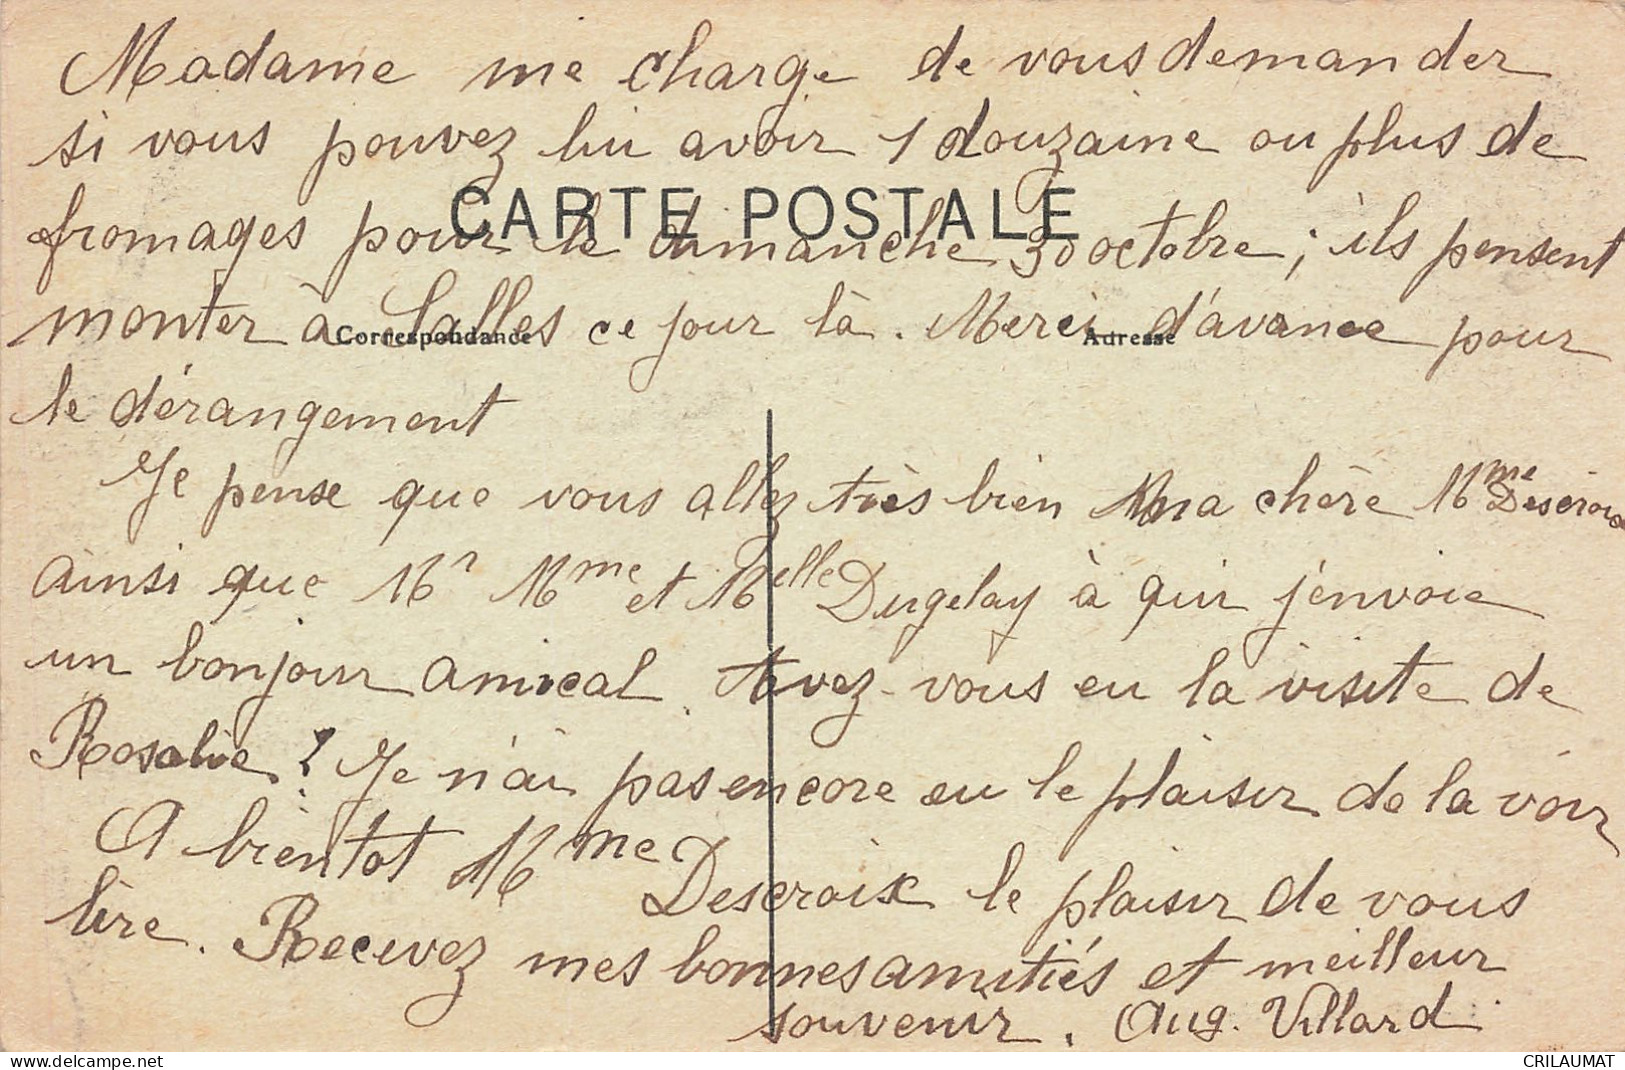 Madame me charge de vous demander
si vous pouvez lui avoir 1 douzaine ou plus de
CARTE POSTALE
fromages pour le dimanche 30 octobre ; ils pensent
monter à Salles ce jour là. Merci d'avance pour
Correspondance Adresse
le dérangement
Je pense que vous allez très bien ma chère Mme Descroix
ainsi que Mr Mme et Melle Dugelay à qui j'envoie
un bonjour amical. Avez-vous eu la visite de
Rosalie ? Je n'ai pas encore eu le plaisir de la voir
A bientot Mme Descroix le plaisir de vous
lire. Recevez mes bonnes amitiés et meilleur
souvenir. Aug. Villard
CRILAUMAT